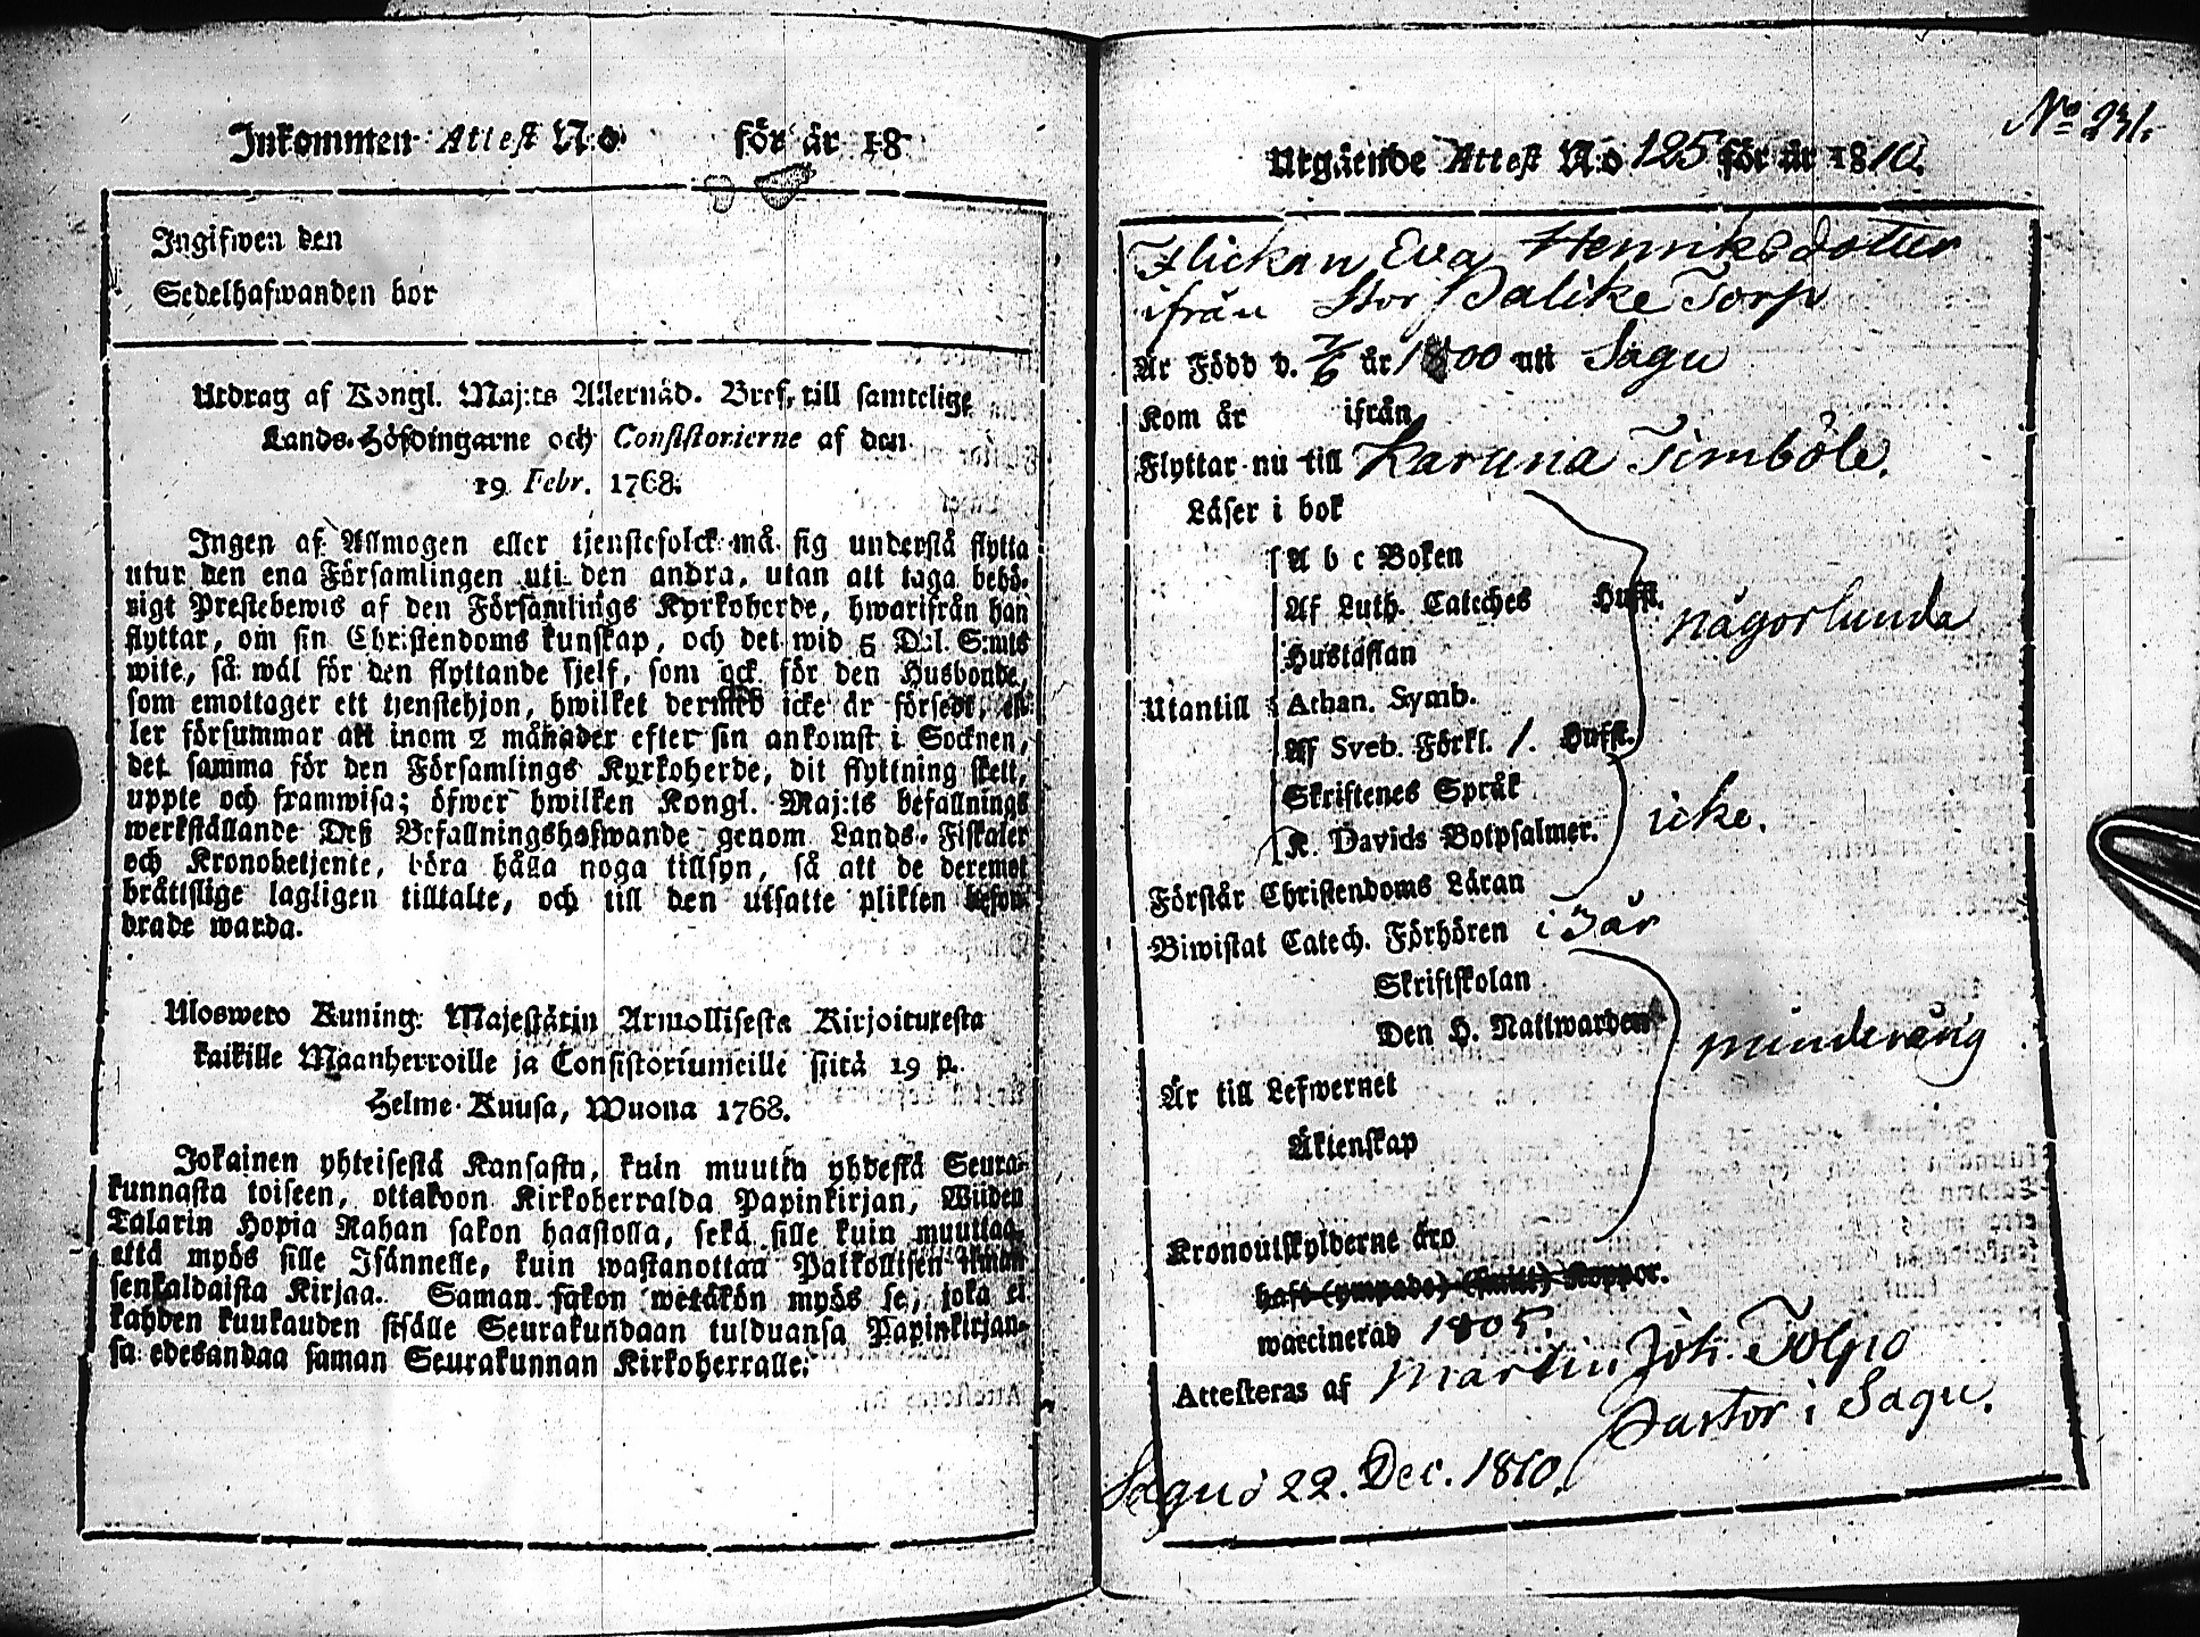 Inkommen Attest N:o för år 18
Ingifwen den
Sedelhafwanden bor
Utdrag af Kongl. Maj:ts Allernåd. Bref, till samtelige
Lands-Höfdingarne och Consistorierne af den
19 Febr. 1768.
Ingen af Allmogen eller tjenstefolck må sig understå flytta
utur den ena Församlingen uti den andra, utan att taga behö-
rigt Prestebewis af den Församlings Kyrkoherde, hwarifrån han
flyttar, om sin Christendoms kunskap, och det wid 5 Dal. S:mts
wite, så wäl för den flyttande sjelf, som ock för den Husbonde,
som emottager ett tjenstehjon, hwilket dermed icke är försedt, el-
ler försummar att inom 2 månader efter sin ankomst i Socknen,
det samma för den Församlings Kyrkoherde, dit flyttning skett,
uppte och framwisa; öfwer hwilken Kongl. Maj:ts befallnings
werkställande Deß Befallningshafwande genom Lands-Fiskaler
och Kronobetjente, böra hålla noga tillsyn, så att de deremot
bråttslige lagligen tilltalte, och till den utsatte plikten befor-
drade warda.
Ulosweto Kuning: Majestätin Armollisesta Kirjoituxesta
kaikille Maanherroille ja Consistoriumeille siitä 19 p.
Helme-Kuusa, Wuona 1768.
Jokainen yhteisestä Kansasta, kuin muutta yhdestä Seura-
kunnasta toiseen, ottakoon Kirkoherralda Papinkirjan, Wiiden
Talarin Hopia Rahan sakon haastolla, sekä sille kuin muuttaa,
että myös sille Isännelle, kuin wastanottaa Palkollisen ilman
senkaldaista Kirjaa. Saman sakon wetäkön myös se, joka ei
kahden kuukauden sisälle Seurakundaan tulduansa Papinkirjan-
sa edesandaa saman Seurakunnan Kirkoherralle.
No 231.
Utgående Attest N:o 125 för år 1810.
Flickan Eva Henriksdotter
ifrån Stor Palike Torp
Är Född d. 7/6 år 1800 uti Sagu
Kom år ifrån
Flyttar nu till Karuna Timböle.
Läser i bok
A b c Boken
Af Luth. Cateches Hufst. någorlunda
Hustaflan
Utantill Athan. Symb.
Af Sveb. Förkl. 1. Hufst.
Skriftenes Språk
K. Davids Botpsalmer. icke.
Förstår Christendoms Läran
Biwistat Catech. Förhören i 3 år
Skriftskolan
Den H. Nattwarden minderårig
Är till Lefwernet
Äktenskap
Kronoutskylderne äro
haft (ympade) (smitt) Koppor.
waccinerad 1805.
Attesteras af Martin Joh. Tolpo
Pastor i Sagu.
Sagu d 22. Dec. 1810.